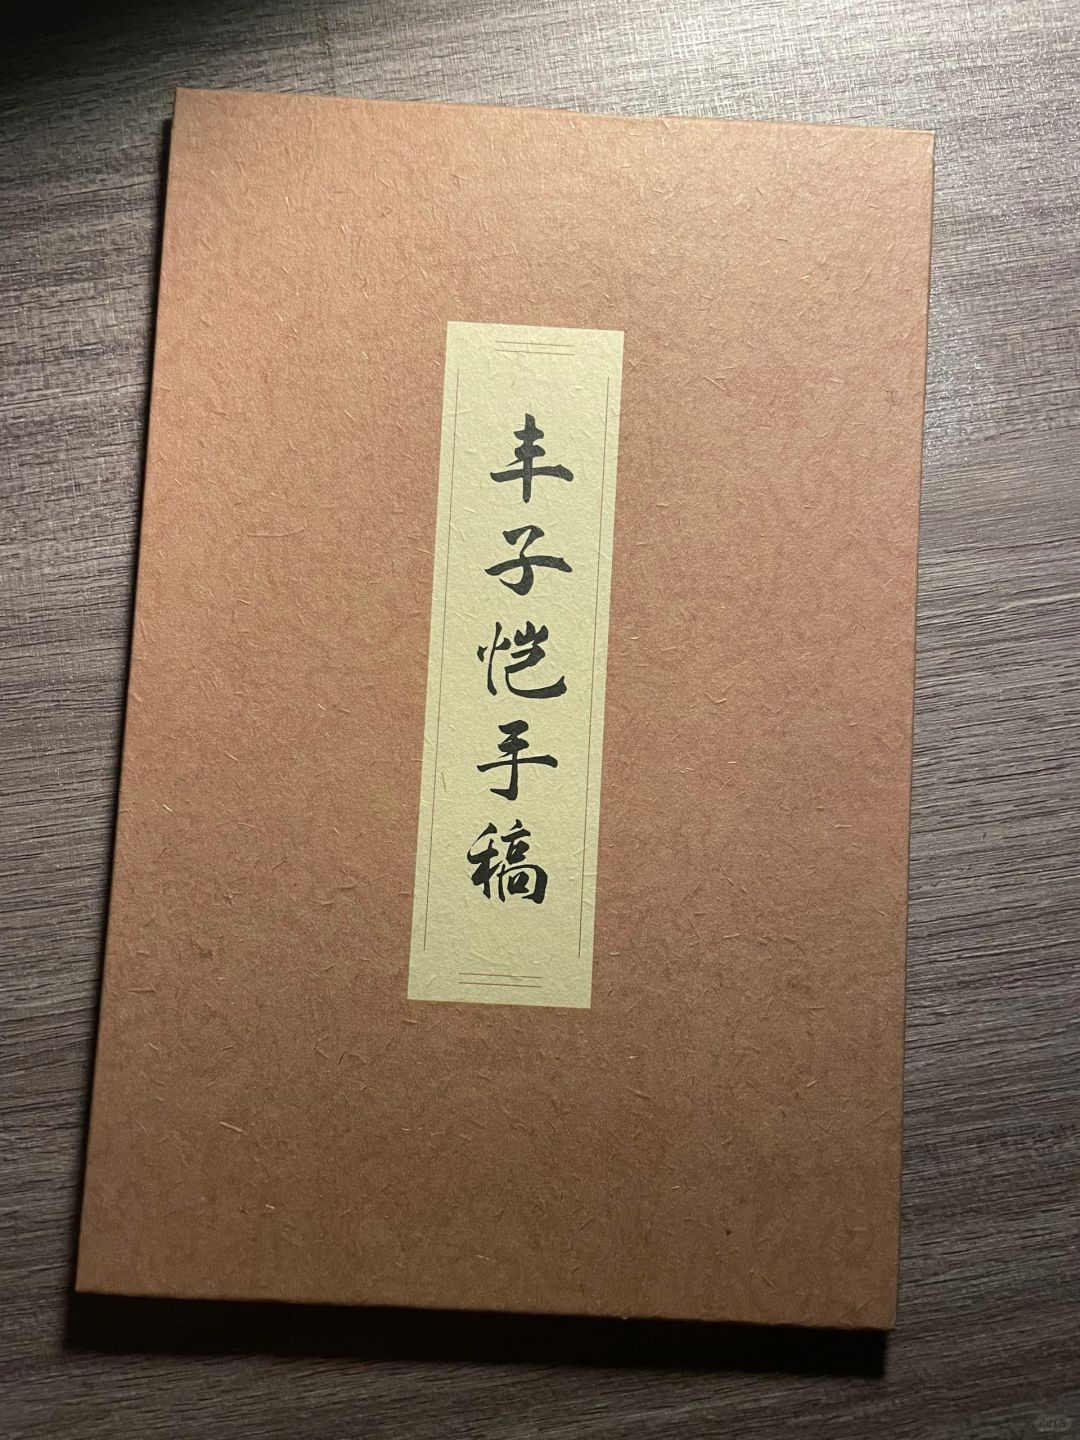 丰子恺手稿